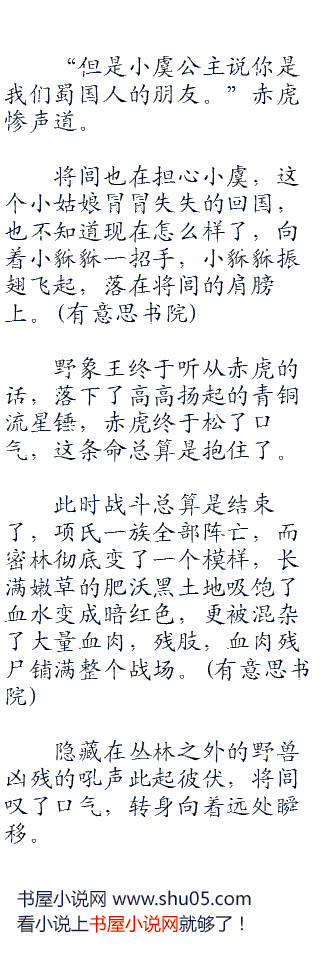 “但是小虞公主说你是
我们蜀国人的朋友。”赤虎
惨声道。
将闾也在担心小虞，这
个小姑娘冒冒失失的回国，
也不知道现在怎么样了，向
着小貅貅一招手，小貅貅振
翅飞起，落在将闾的肩膀
上。(有意思书院)
野象王终于听从赤虎的
话，落下了高高扬起的青铜
流星锤，赤虎终于松了口
气，这条命总算是抱住了。
此时战斗总算是结束
了，项氏一族全部阵亡，而
密林彻底变了一个模样，长
满嫩草的肥沃黑土地吸饱了
血水变成暗红色，更被混杂
了大量血肉，残肢，血肉残
尸铺满整个战场。(有意思书
院)
隐藏在丛林之外的野兽
凶残的吼声此起彼伏，将闾
叹了口气，转身向着远处瞬
移。
书屋小说网 www.shu05.com
看小说上书屋小说网就够了！